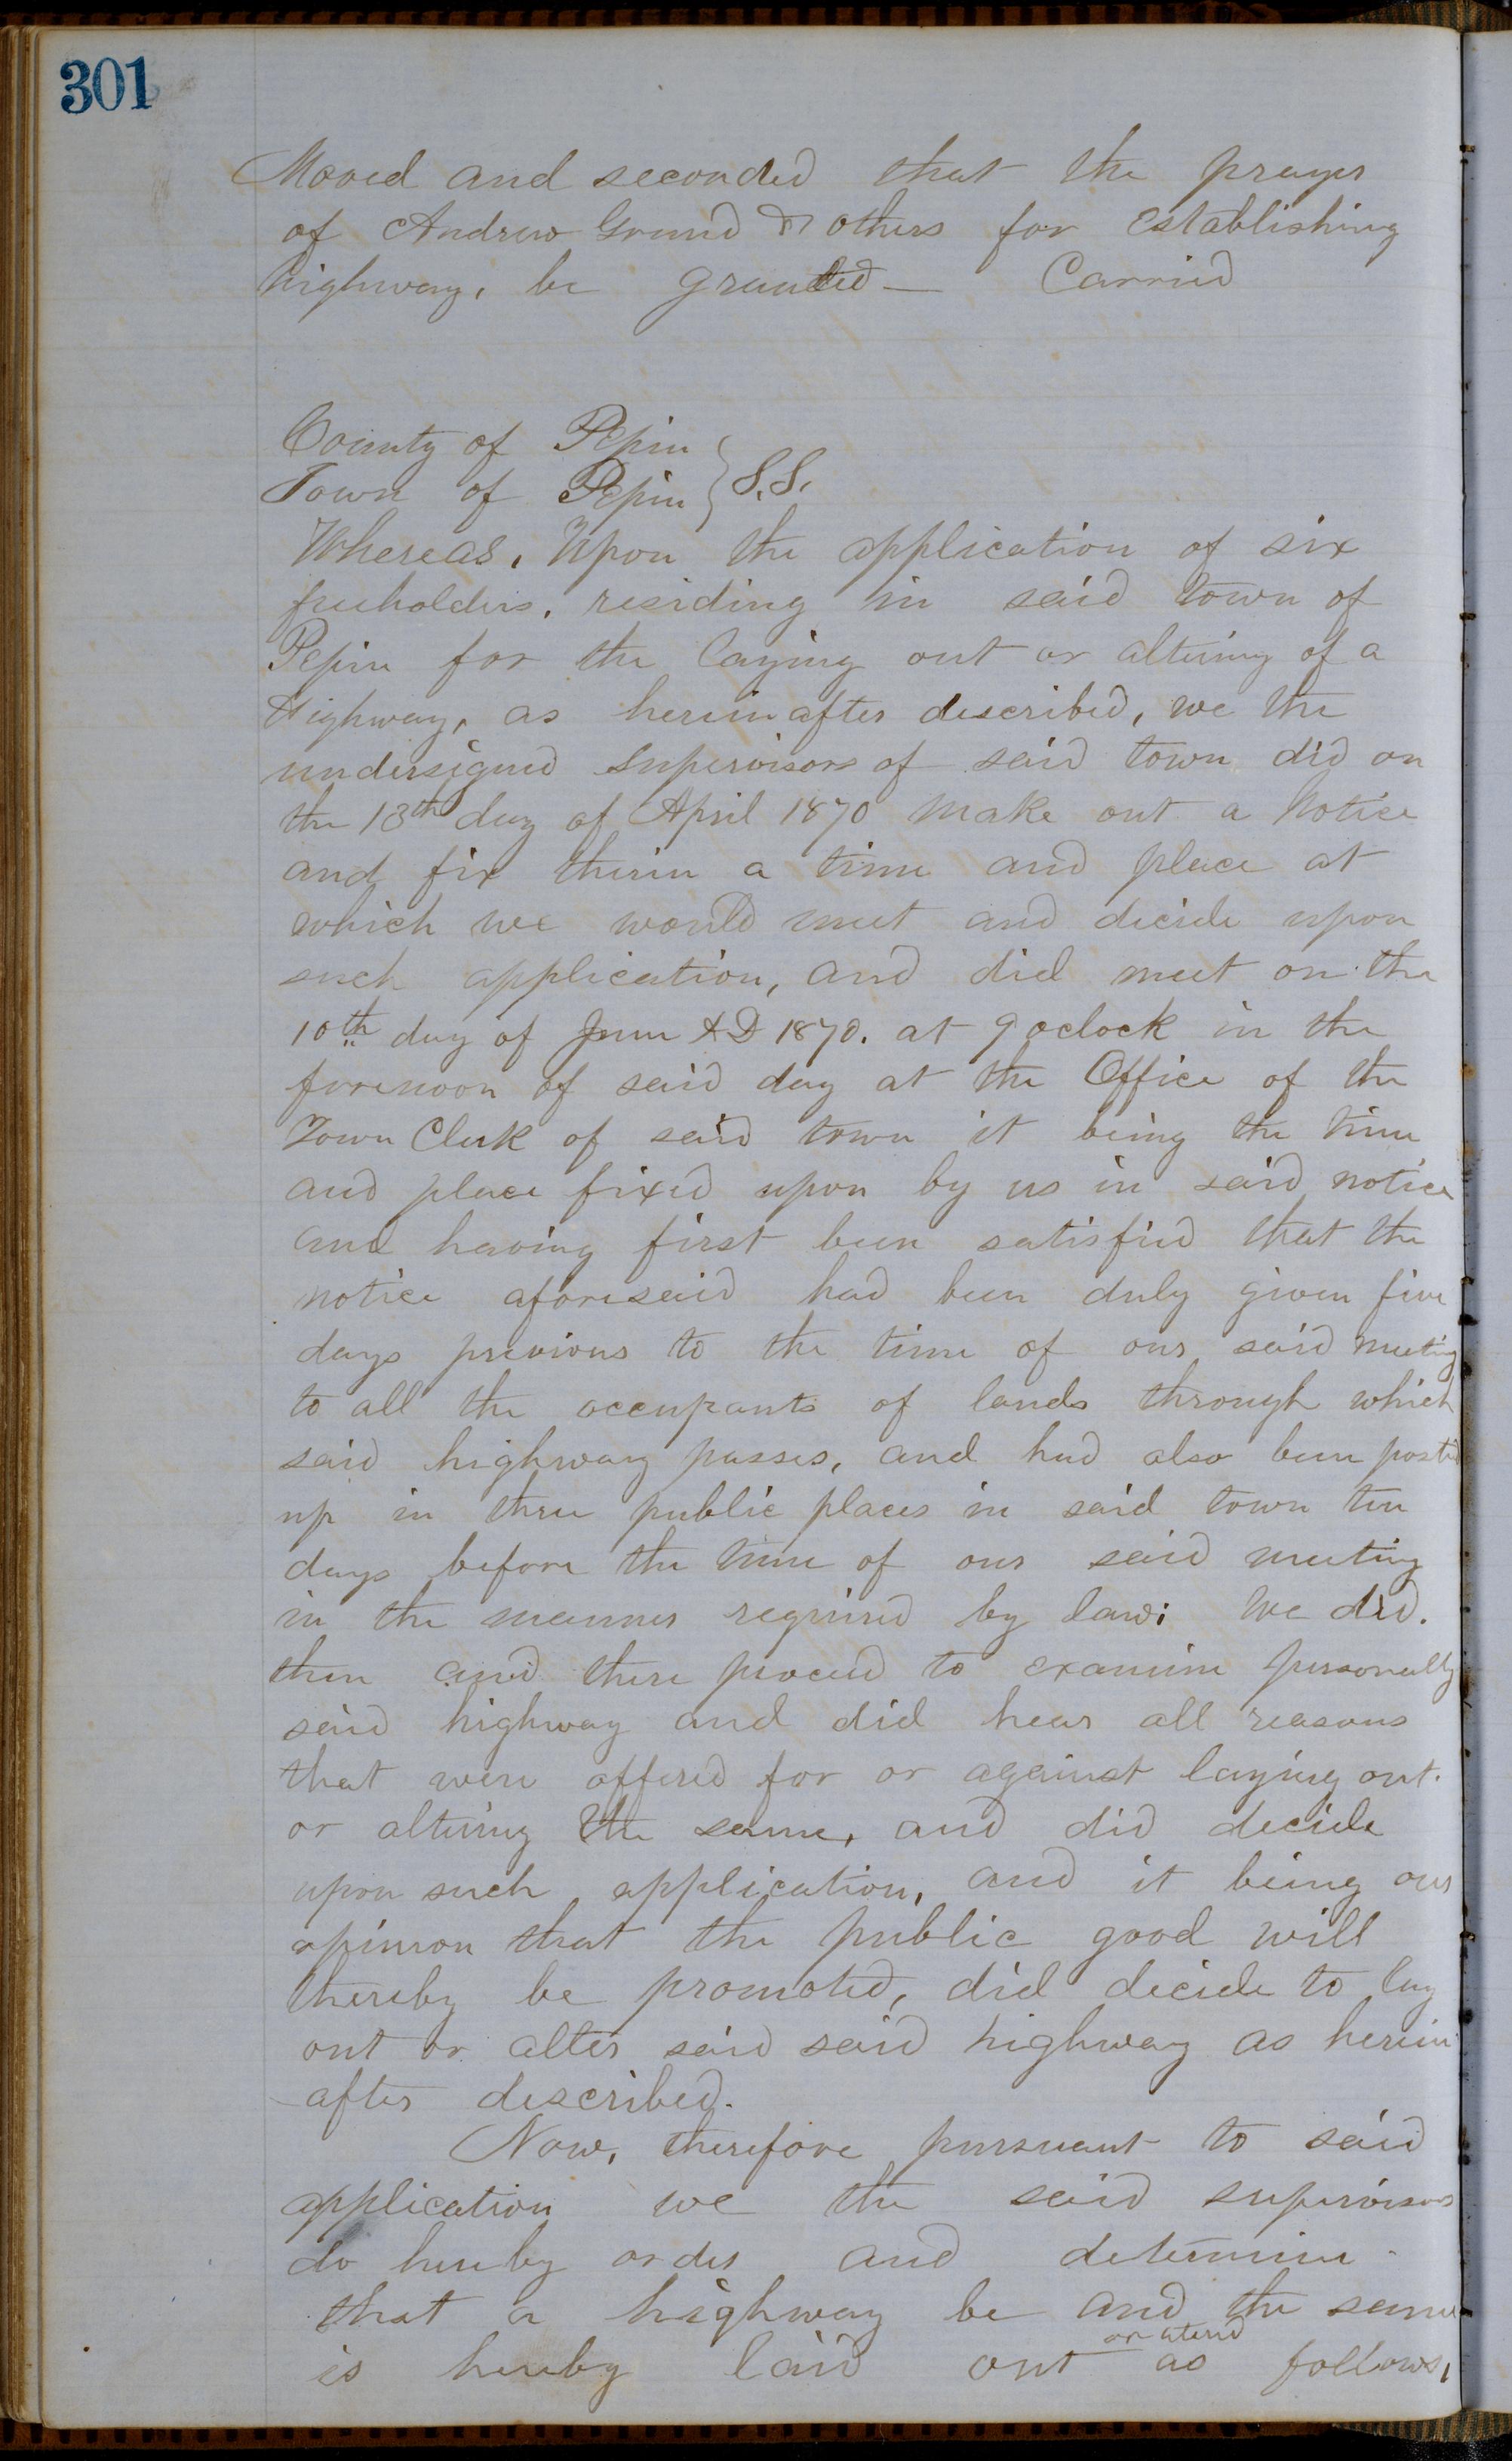 301
Moved and seconded that the prayer
of Andrew Grund & others for Establishing
highway, be granted — Carried
County of Pepin
Town of Pepin } S.S.
Whereas, Upon the application of six
freeholders, residing in said town of
Pepin for the laying out or altering of a
Highway, as herein after described, we the
undersigned supervisors of said town did on
the 13th day of April 1870 make out a Notice
and fix therin a time and place at
which we would meet and decide upon
such application, and did meet on the
10th day of June AD 1870. at 9 oclock in the
forenoon of said day at the Office of the
Town Clerk of said town it being the time
and place fixed upon by us in said notice
and having first been satisfied that the
notice aforesaid had been duly given five
days previous to the time of our said meeting
to all the occupants of lands through which
said highway passes, and had also been posted
up in three public places in said town ten
days before the time of our said meeting
in the manner required by law; We did.
then and there proceed to examine personally
said highway and did hear all reasons
that were offered for or against laying out.
or altering the same, and did decide
upon such application, and it being our
opinion that the public good will
thereby be promoted, did decide to lay
out or alter said said highway as herein
after described.
Now, therefore pursuant to said
application we the said supervisors
do hereby order and determine
that a highway be and the same
is hereby laid out or aterd as follows,